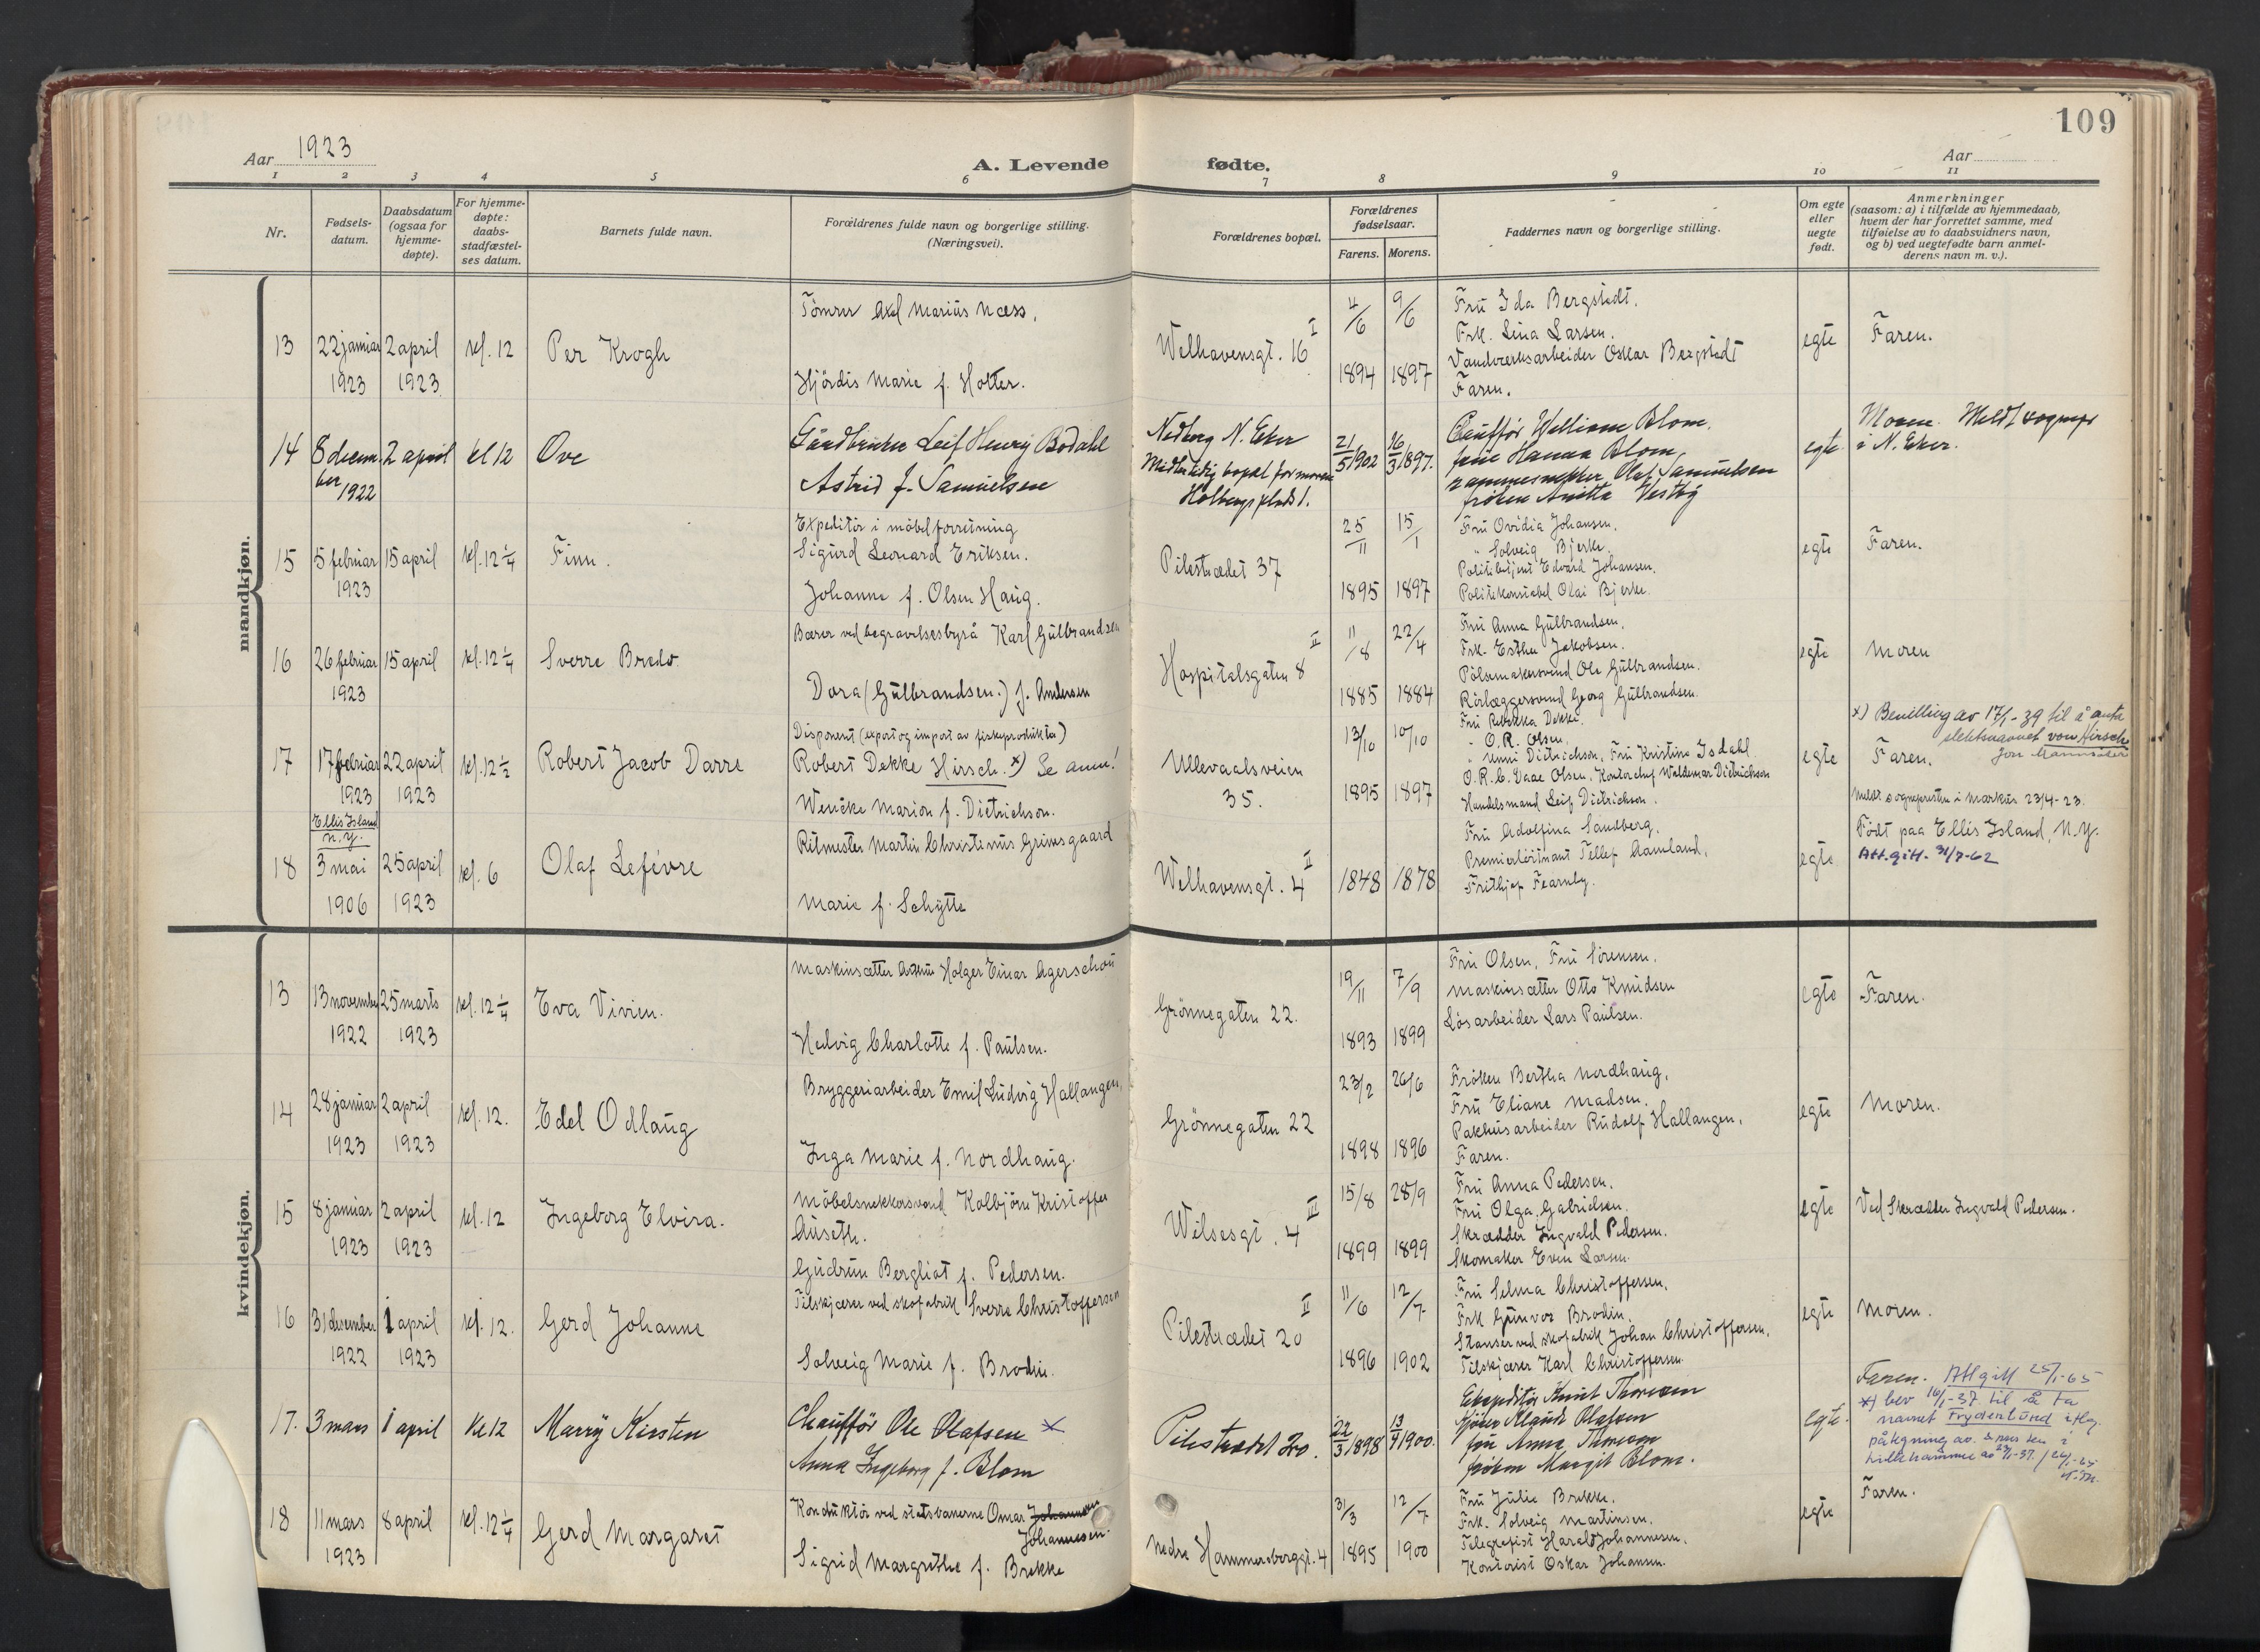 109
Aar 1923
A. Levende fødte.
Aar
1 2 3 4 5 6 7 8 9 10 11
Nr.
Fødsels-
datum.
Daabsdatum
(ogsaa for
hjemme-
døpte).
For hjemme-
døpte:
daabs-
stadfæstel-
ses datum.
Barnets fulde navn.
Forældrenes fulde navn og borgerlige stilling.
(Næringsvei).
Forældrenes bopæl.
Forældrenes
fødselsaar.
Farens. Morens.
Faddernes navn og borgerlige stilling.
Om egte
eller
uegte
født.
Anmerkninger
(saasom: a) i tilfælde av hjemmedaab,
hvem der har forrettet samme, med
tilføielse av to daabsvidners navn,
og b) ved uegtefødte barn anmel-
derens navn m. v.).
mandkjøn.
13
22 januar
1923
2 april
1923
kl. 12
Per Krogh
Tömrer Axel Marius Næss.
Hjördis Marie f. Holter.
Welhavensgt. 16 I
4/6 1894
9/6 1897
Fru Ida Bergstedt.
Frk. Lina Larsen.
Vandverksarbeider Oskar Bergstedt
Faren.
egte
Faren.
14
8 decem-
ber
1922
2 april
kl 12
Ove
Gårdbruker Leif Henry Bodahl
Astrid f. Samuelsen
Nedberg N. Eker
Midlertidig bopæl for moren
Holbergs plads 1.
21/5 1902
16/3 1897.
Chaufför William Blom.
frue Hanna Blom,
rammesnekker Olaf Samuelsen
fröken Anitta Vestby
egte
Moren. Meldt sognepr
i N. Eker.
15
5 februar
1923
15 april
kl. 12 1/4
Finn.
Expeditör i möbelforretning
Sigurd Leonard Eriksen.
Johanne f. Olsen Haug.
Pilestrædet 37
25/11 1895
15/1 1897
Fru Ovidia Johansen.
" Solveig Bjerke.
Politibetjent Edvard Johansen.
Politikonstabel Olai Bjerke.
egte
Faren.
16
26 februar
1923
15 april
kl. 12 1/4
Sverre Bredo
Bærer ved begravelsesbyrå Karl Gulbrandsen
Dora (Gulbrandsen.) f. Andersen
Hospitalsgaten 8 II
11/8 1885
22/4 1884
Fru Anna Gulbrandsen.
Frk. Esther Jakobsen.
Pölsemakersvend Ole Gulbrandsen.
Rörlæggersvend Georg Gulbrandsen.
egte
Moren
17
17 februar
1923
22 april
1923
kl. 12 1/2
Robert Jacob Darre
Disponent (export og import av fiskeprodukter)
Robert Dekke Hirsch. x) Se anm!
Wencke Marion f. Dietrichson.
Ullevaalsveien
35.
13/10 1895
10/10 1897
Fru Rebekka Dekke.
" O.R. Olsen.
" Unni Dietrichson, Fru Kristine Isdahl
O.R.C. Vaae Olsen, Kontorchef Waldemar Dietrichson
Handelsmand Leif Dietrichson.
egte
x) Bevilling av 17/1-39 til å anta
slektsnavnet von Hirsch
Faren.
Meldt sognepresten i Markus 23/4-23.
18
Ellis Island
N.Y.
3 mai
1906
25 april
1923
kl. 6
Olaf Lefévre
Ritmester Martin Christenius Grimsgaard
Marie f. Schytte
Welhavensgt. 4 II
1848
1878
Fru Adolfina Sandberg.
Premierlöitnant Tellef Aamland.
Frithjof Fearnly.
egte
Født paa Ellis Island, N.Y.
Att. gitt. 31/7-62
kvindekjøn.
13
13 november
1922
25 marts
1923
kl. 12 1/4
Eva Vivien.
Maskinsætter Holger Einar Agerschou
Hedvig Charlotte f. Paulsen.
Grönnegaten 22.
19/11 1893
7/9 1899
Fru Olsen, Fru Sörensen.
Maskinsætter Otto Knudsen
Lösarbeider Lars Paulsen.
egte
Faren.
14
28 januar
1923
2 april
1923
kl. 12.
Edel Odlaug
Bryggeriarbeider Emil Ludvig Hallangen.
Inga Marie f. Nordhaug.
Grönnegaten 22
23/2 1898
26/6 1896
Fröken Bertha Nordhaug.
Fru Eliane Madsen.
Pakhusarbeider Rudolf Hallangen.
Faren.
egte
Moren.
15
8 januar
1923
2 april
1923
kl. 12
Ingeborg Elvira.
Möbelsnekkersvend Kolbjörn Kristoffer
Auseth.
Gudrun Bergliot f. Pedersen.
Wilsesgt. 4 III
15/8 1899
28/9 1899
Fru Anna Pedersen.
Fru Olga Gabrielsen.
Skrædder Ingvald Pedersen.
Skomaker Even Larsen.
egte
Ved Skrædder Ingvald Pedersen.
16
31 desember
1922
1 april
1923
kl. 12.
Gerd Johanne
Tilskjærer ved skofabrik Sverre Christoffersen
Solveig Marie f. Brodin.
Pilestrædet 20 II
11/6 1896
12/7 1902
Fru Selma Christoffersen.
Frk Gunvor Brodin.
Stanser ved skofabrik Johan Christoffersen.
Tilskjærer Karl Christoffersen.
egte
Moren.
17.
3 mars
1 april
Kl 12
Marry Kirsten
Chaufför Ole Olafsen x
Anna Ingeborg f. Blom
Pilestrædet
22/3 1898
1900.
Ekspeditör Knut Thoresen
Olafsen
fru Anna Thoresen
fröken Margit Blom.
egte.
Faren. Att gitt 25/1-65
x) bev 16/1-37. til å ta
navnet Frydenlund iflg.
påtegning av
18
11 mars
1923
8 april
kl. 12 1/4
Gerd Margaret
Konduktör ved statsbanerne Omar Johannesen
Johannesen.
Sigrid Margrethe f. Brekke
Nedre Hammersborggt. 4
31/3 1895
12/7 1900
Fru Julie Brekke.
Frk. Solveig Martinsen.
Telegrafist Harald Johannesen.
Kontorist Oskar Johansen.
egte
Faren.